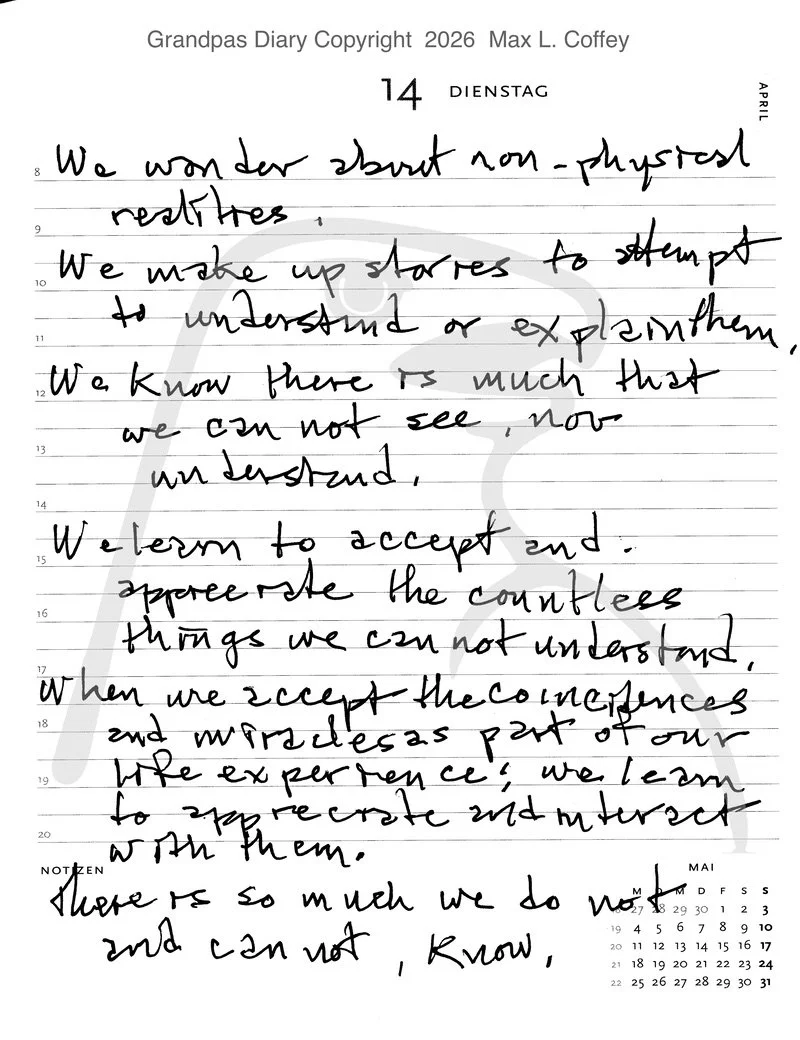 Grandpas Diary Copyright 2026 Max L. Coffey
14 DIENSTAG
APRIL
8 We wonder about non-physical
realities.
9
We make up stories to attempt
10
to understand or explain them,
11
We know there is much that
12
we can not see, nor
13
understand.
14
We learn to accept and.
15
appreciate the countless
16
things we can not understand.
17
When we accept the coincidences
18
and miracles as part of our
life experience; we learn
19
to appreciate and interact
20
with them.
NOTIZEN
There is so much we do not
and can not, know.
MAI
M D M D F S S
18 27 28 29 30 1 2 3
19 4 5 6 7 8 9 10
20 11 12 13 14 15 16 17
21 18 19 20 21 22 23 24
22 25 26 27 28 29 30 31